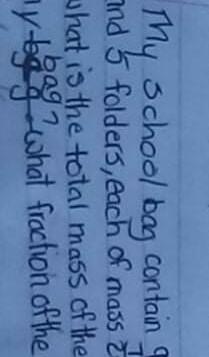 My school bag contain 9
nd 5 folders, each of mass 2
what is the total mass of the
bag?
y what fraction of the